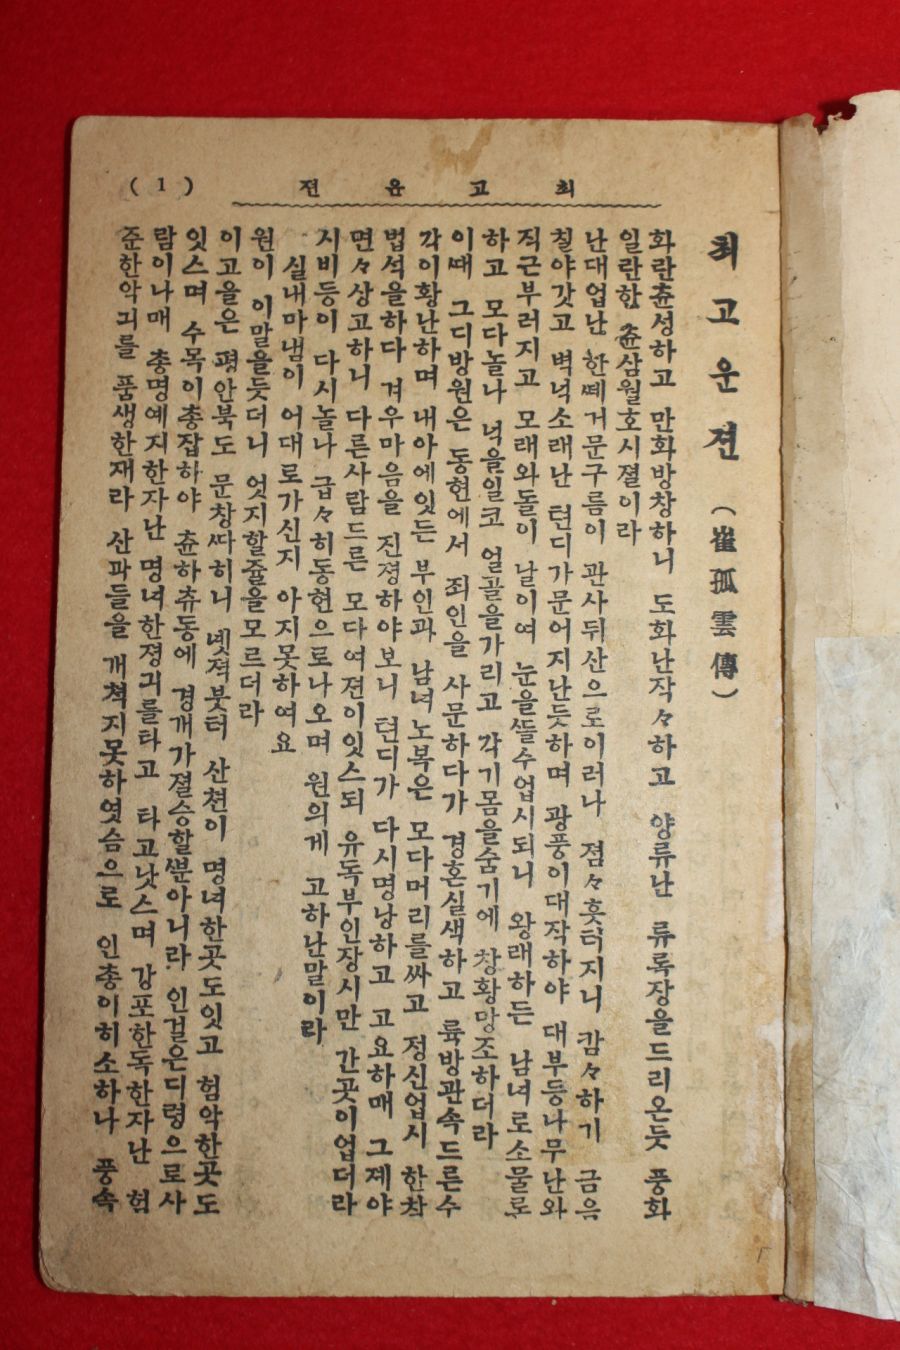 (1) 최고운전
최고운젼 (崔孤雲傳)
화란츈셩하고 만화방창하니 도화난작々하고 양류난 류록장을드리온듯 풍화
일란한 츈삼월호시졀이라
난대업난 한떼거문구름이 관사뒤산으로이러나 졈々흣터지니 캄々하기 금음
칠야갓고 벽녁소래난 텬디가문어지난듯하며 광풍이대작하야 대부등나무난와
직근부러지고 모래와돌이 날이여 눈을뜰수업시되니 왕래하든 남녀로소물론
하고 모다놀나 넉을일코 얼골을가리고 각기몸을숨기에 창황망조하더라
이때 그디방원은 동헌에서 죄인을 사문하다가 경혼실색하고 륙방관속드른수
각이황난하며 내아에잇든 부인과 남녀노복은 모다머리를싸고 정신업시 한참
법석을하다 겨우마음을 진졍하야보니 텬디가 다시명낭하고 고요하매 그제야
면々상고하니 다른사람드른 모다여젼이잇스되 유독부인장시만 간곳이업더라
시비등이 다시놀나 급々히동헌으로나오며 원의게 고하난말이라
실내마냄이 어대로가신지 아지못하여요
원이 이말을듯더니 엇지할쥴을모르더라
이고을은 평안북도 문창따히니 녯젹붓터 산쳔이 명녀한곳도잇고 험악한곳도
잇스며 수목이총잡하야 츈하츄동에 경개가졀승할뿐아니라 인걸은디령으로사
람이나매 총명예지한자난 명녀한졍긔를타고 타고낫스며 강포한독한자난 험
준한악긔를 품생한재라 산파들을 개쳑지못하엿슴으로 인총이히소하나 풍속